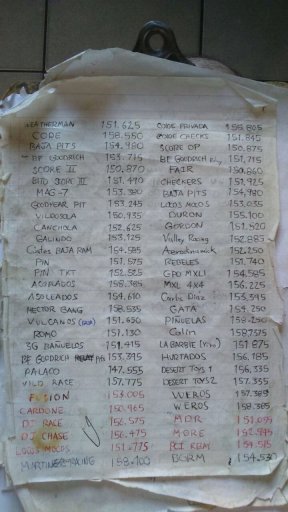 WEATHERMAN 151.625 CODE PRIVADA 155.805
CODE 158.580 CODE CHECKS 151.845
BAJA PITS 154.980 SCORE OP 150.875
BF GOODRICH 153.775 BF GOODRICH 151.715
SCORE II 150.870 FAIR 150.860
BITD SCORE III 151.490 CHECKERS 151.925
MAG-7 BAJA PITS 154.980
GOODYEAR PIT 153.245 LOCOS MOCOS 153.035
VILDOSOLA 150.935 DURON 155.100
CANCHOLA 152.625 GORDON 151.520
GALINDO 153.125 Valley Racing 152.885
BAJA RAM 154.585 152.250
PIN 151.575 REBELES 151.740
PIN TKT 152.525 GPO MXLI 154.585
ACOPLADOS 158.385 MXL 4X4 156.225
ASOLEADOS 154.610 Carlos Diaz
HECTOR GANG 158.535 GATA 154.250
VULCANOS PIÑUELAS
ROMO 151.130 Colin
SG BAÑUELOS 151.415 LA BARBIE 151.875
BF GOODRICH RELAY 153.395 HURTADOS 156.185
PALACO 147.555 DESERT TOYS 1 156.335
VILD RACE 157.775 DESERT TOYS 2 157.335
FUSION 153.005 WEROS 157.385
CARDONE 150.965 WEROS 158.365
DJ RACE 156.575 MDR 151.055
DJ CHASE 156.475 MORE
LOCOS MOCOS 151.775 PCI REM 154.515
MARTINEZ RACING 158.400 BGRM 154.530